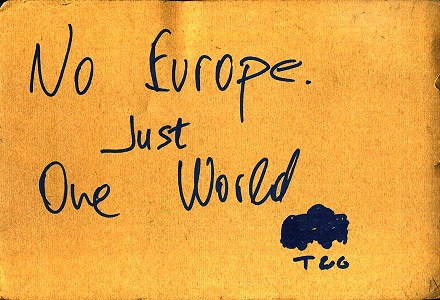 No Europe.
Just
One World